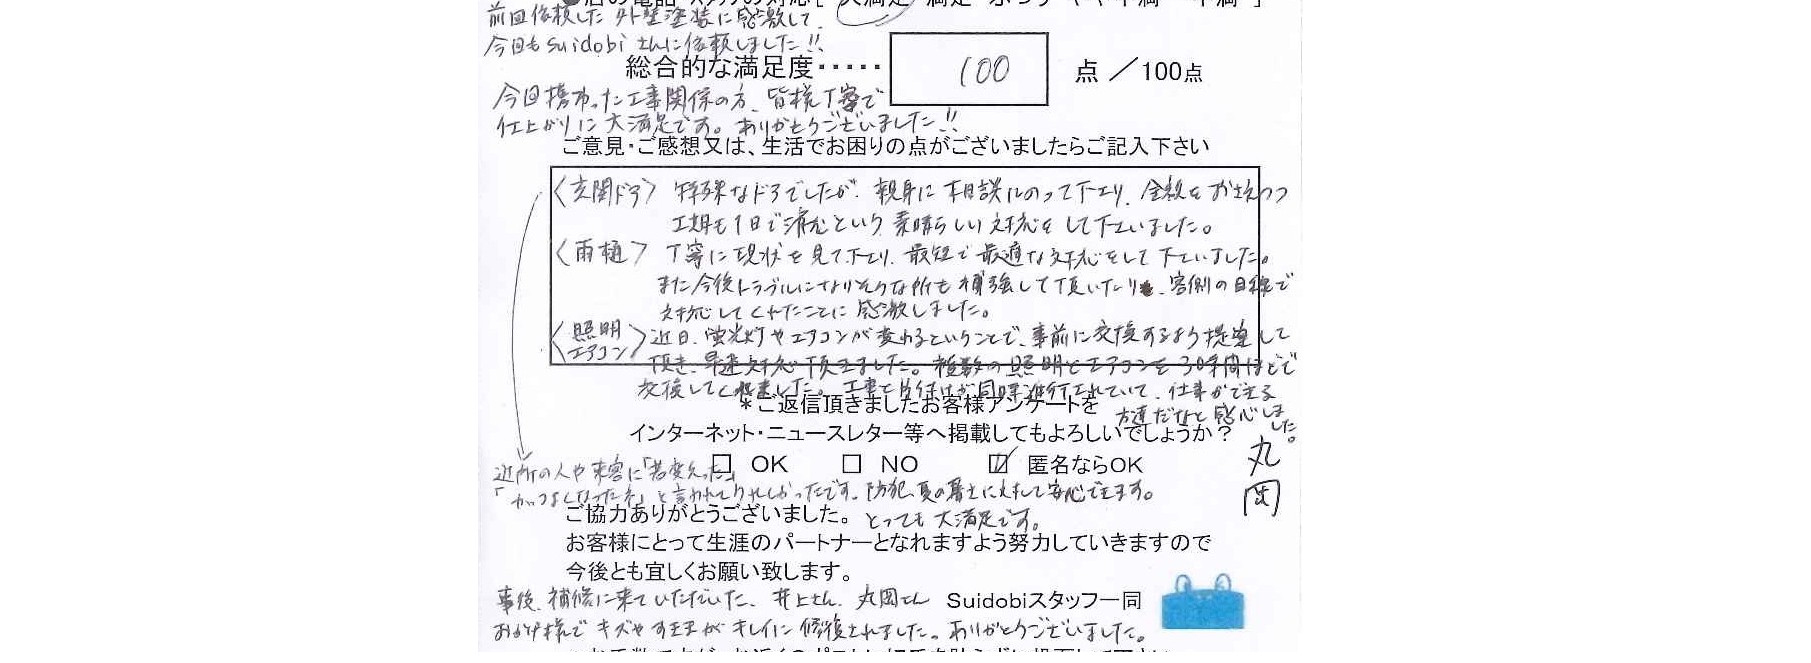 前回依頼した外壁塗装に感激して、
今回もsuidobiさんに依頼しました!!
総合的な満足度・・・・・ 100 点 ／100点
今回携わった工事関係の方、皆様丁寧で
仕上がりに大満足です。ありがとうございました!!
ご意見・ご感想又は、生活でお困りの点がございましたらご記入下さい
〈玄関ドア〉 特殊なドアでしたが、親身に相談にのって下さり、金額をおさえつつ
工期も1日で済むという素晴らしい対応をして下さいました。
〈雨樋〉 丁寧に現状を見て下さり、最短で最適な対応をして下さいました。
また今後トラブルになりそうな所も補強して頂いたり、客側の目線で
対応してくれたことに感激しました。
〈照明 エアコン〉 近日、蛍光灯やエアコンが変わるということで、事前に交換するよう提案して
頂き、早速対応頂きました。複数の照明とエアコンを3時間ほどで
交換してくれました。工事と片付けが同時進行されていて、仕事ができる
方達だなと感心しました。
＊ご返信頂きましたお客様アンケートを
インターネット・ニュースレター等へ掲載してもよろしいでしょうか？
□ OK □ NO ☑ 匿名ならOK
丸岡
近所の人や来客に「若変えった」
「かっこよくなったネ」と言われてうれしかったです。防犯、夏の暑さに対して安心できます。
とっても大満足です。
ご協力ありがとうございました。
お客様にとって生涯のパートナーとなれますよう努力していきますので
今後とも宜しくお願い致します。
事後、補修に来ていただいた、井上さん、丸岡さん
Suidobiスタッフ一同
おかげ様でキズやすきまがキレイに修復されました。ありがとうございました。